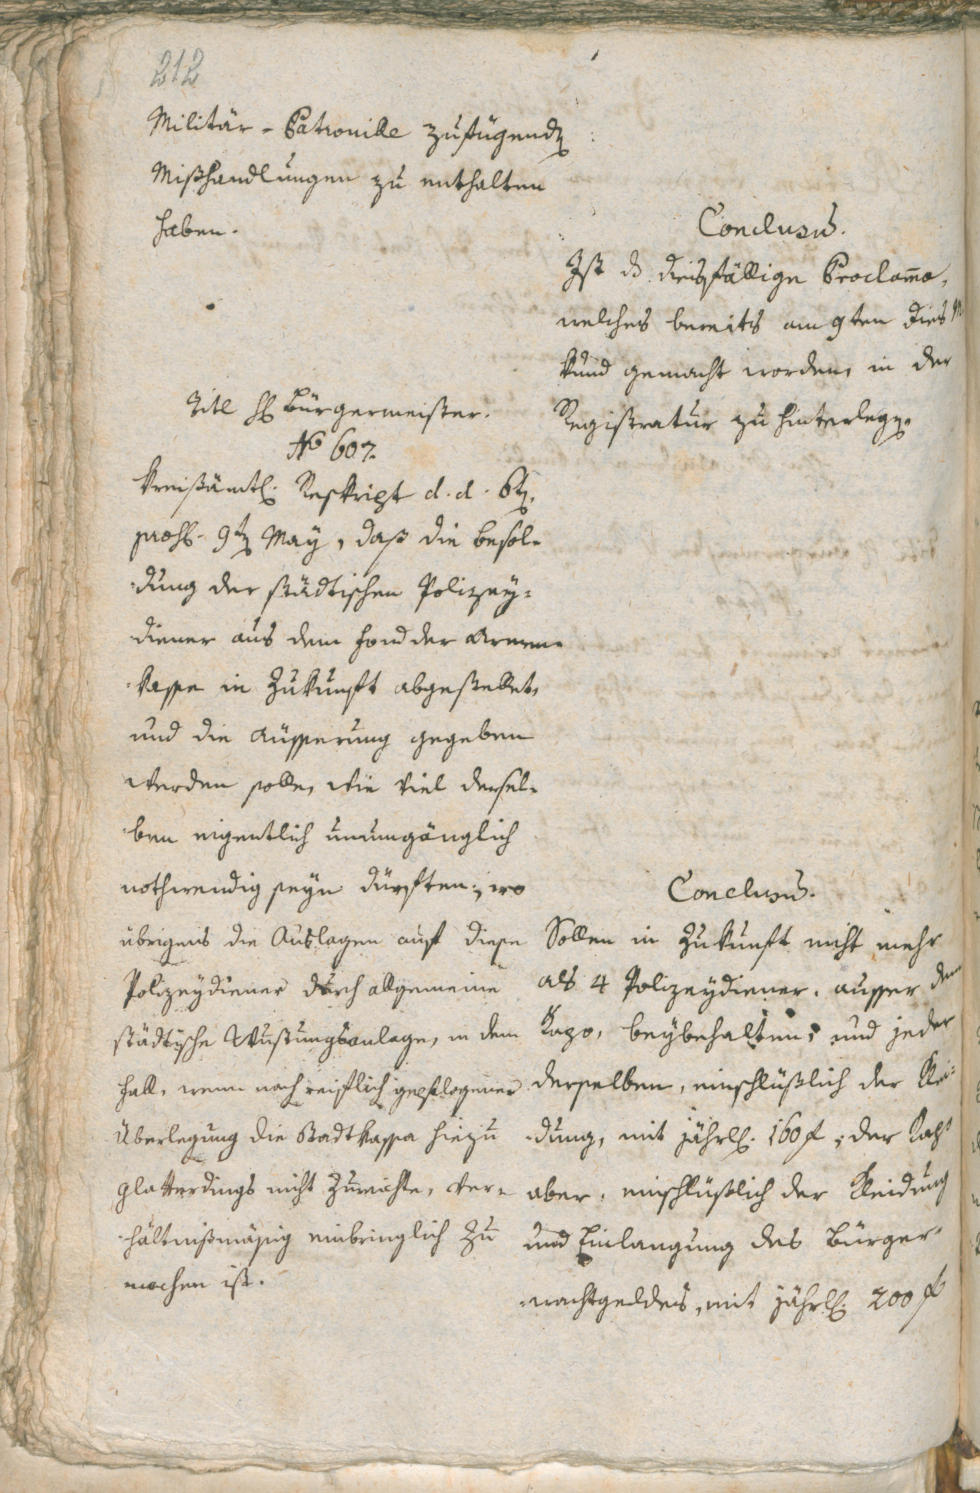 212
Militär-Patrouille zufügend
Mißhandlungen zu enthalten
haben.
Conclusū.
Ist dß diesfällige Proclam̄a,
welches bereits am 9ten dies
kund gemacht worden, in der
Registratur zu hinterlegen.
Titl H Bürgermeister.
No 607.
Kreisämtl. Reskript d. d.
9t May, daß die Besol-
dung der städtischen Polizey-
diener aus dem Fond der Armen-
kasse in Zukunft abgestellet,
und die Äusserung gegeben
werden solle, wie viel dersel-
ben eigentlich unumgänglich
nothwendig seyn dürften; wo
übrigens die Auslagen auf diese
Polizeydiener durch allgemeine
städtische anlage, in dem
Fall, wenn nach reiflich gepflogener
Überlegung die Stadtkassa hiezu
glatterdings nicht zureichte, ver-
hältnißmäsig einbringlich zu
machen ist.
Conclusū.
Sollen in Zukunft nicht mehr
als 4 Polizeydiener, ausser dem
beybehalten, und jeder
derselben, einschlüßlich der Klei-
dung, mit jährl. 160 f, der
aber, einschlüßlich der Kleidung
und Einlangung des Bürger-
wachtgeldes, mit jährl. 200 f